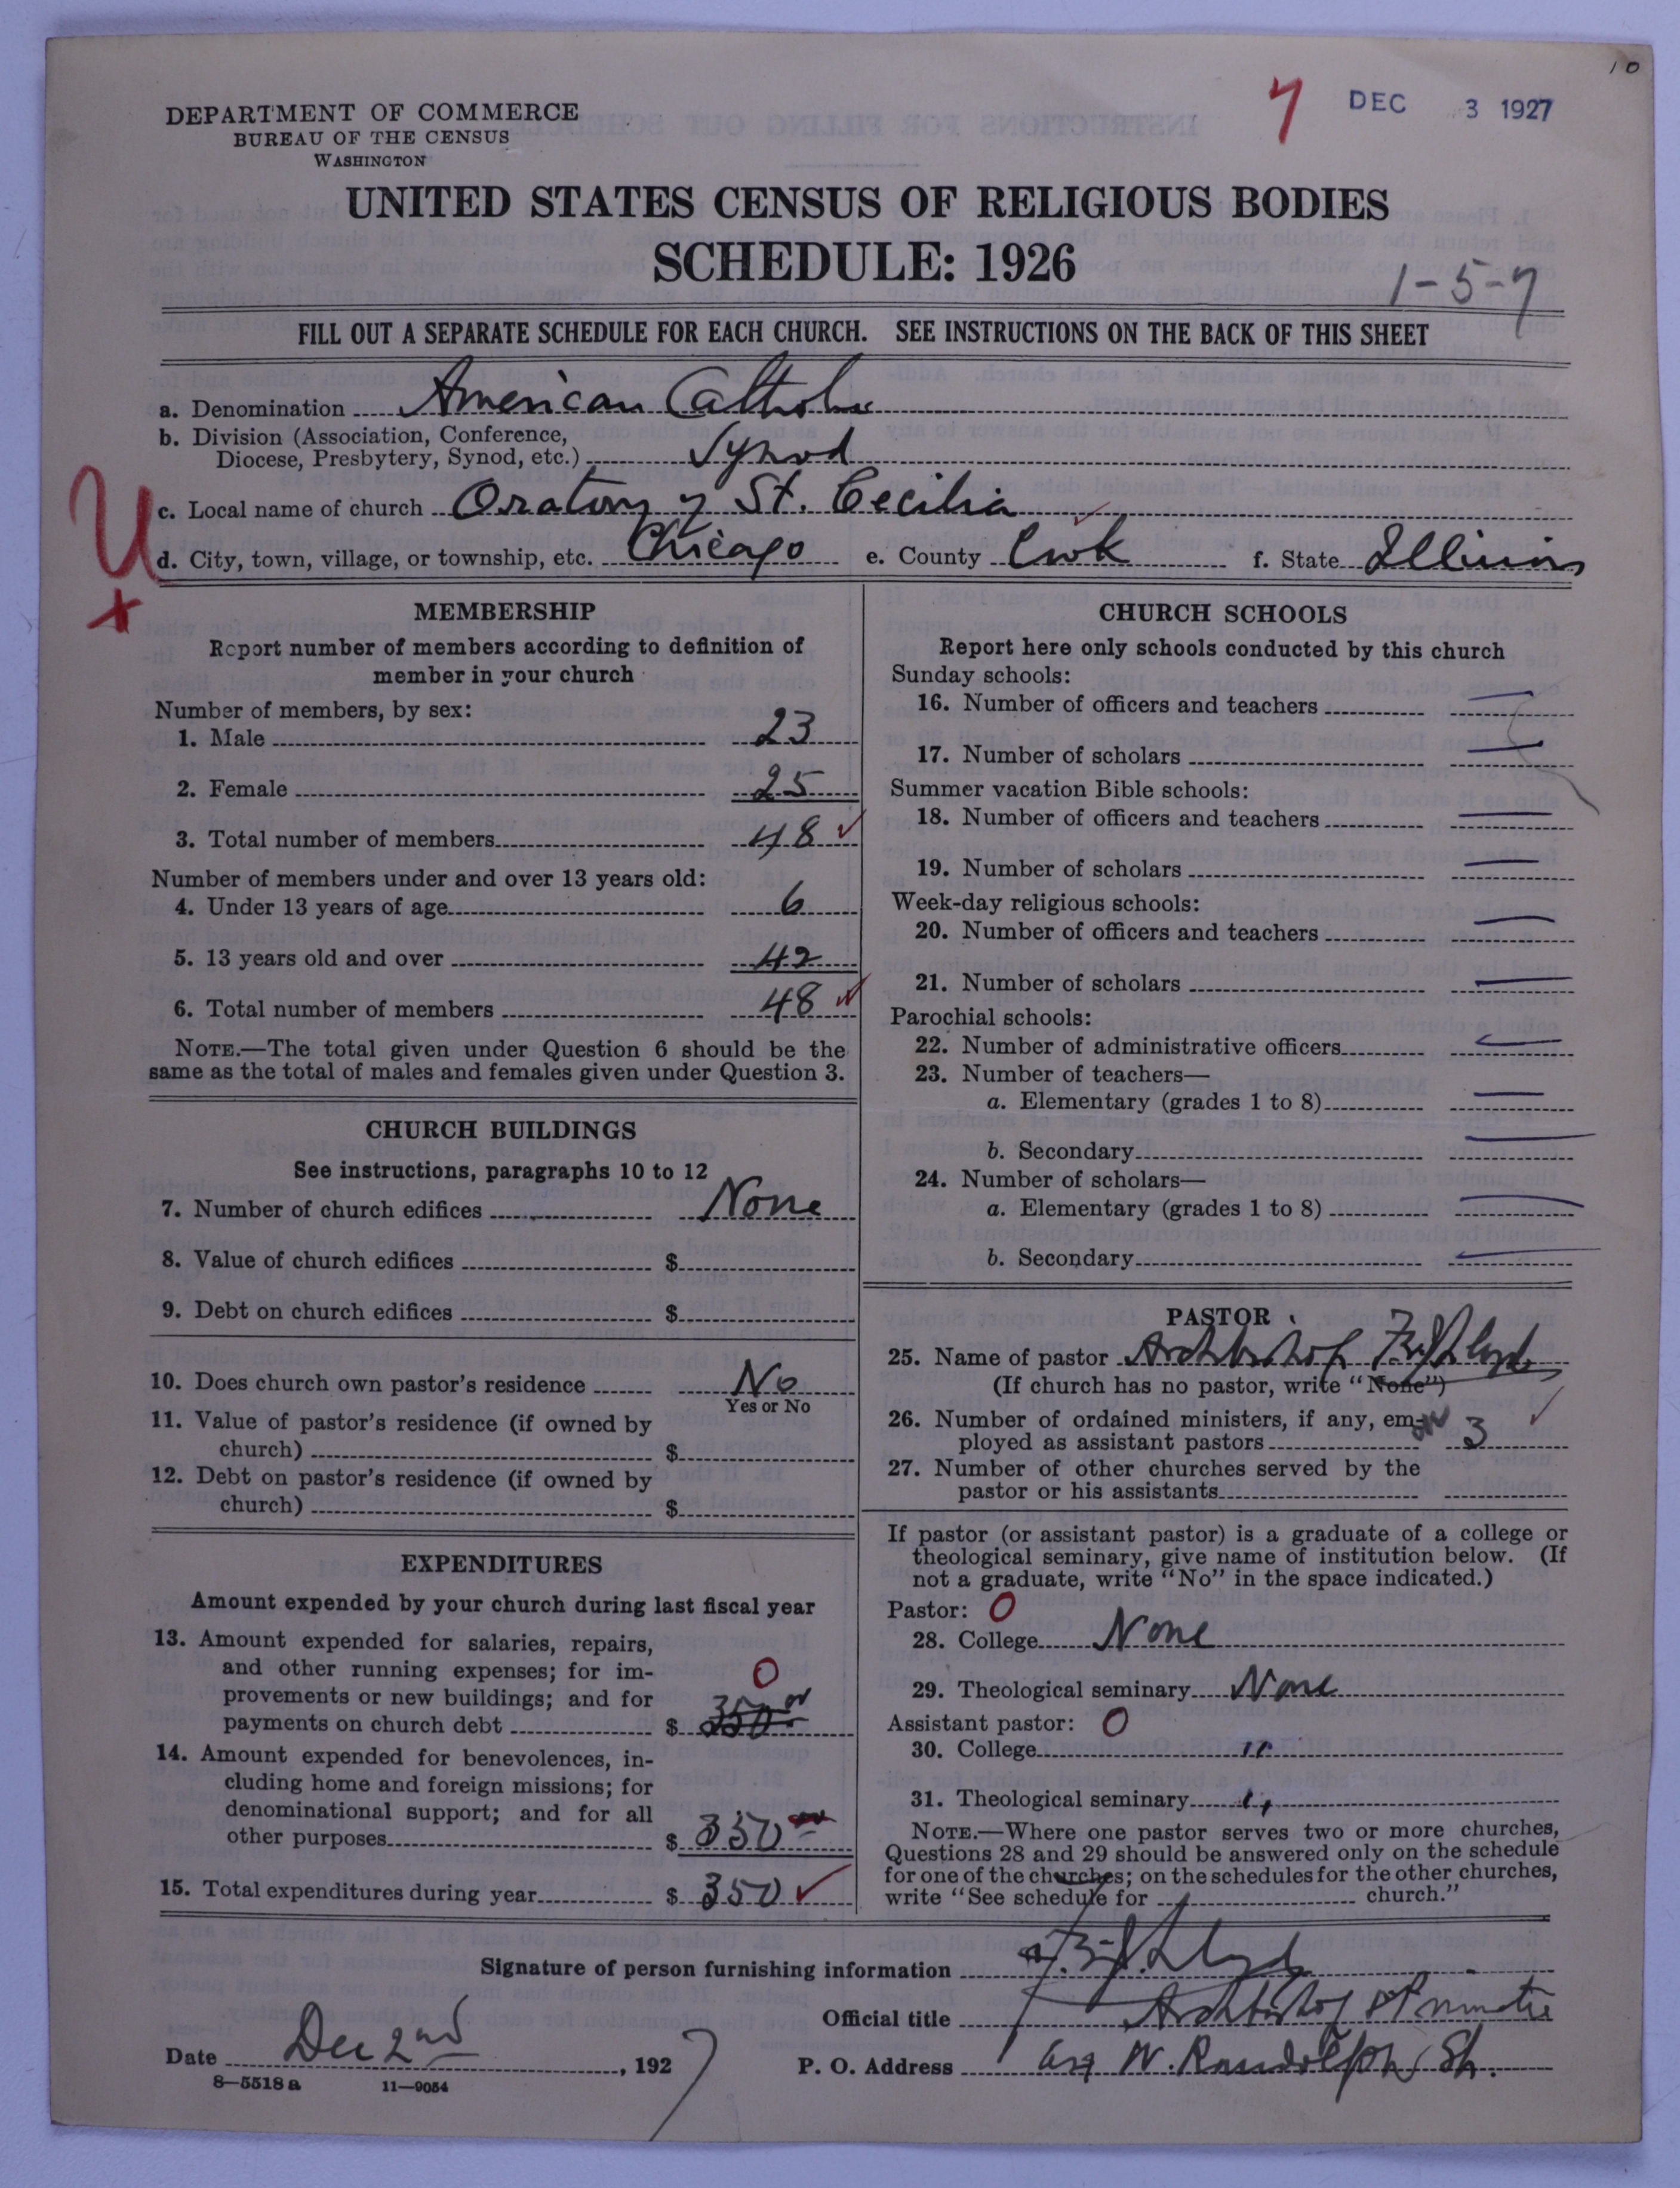 10
7 DEC 3 1927
DEPARTMENT OF COMMERCE
BUREAU OF THE CENSUS
WASHINGTON
UNITED STATES CENSUS OF RELIGIOUS BODIES
SCHEDULE: 1926
1-5-7
FILL OUT A SEPARATE SCHEDULE FOR EACH CHURCH. SEE INSTRUCTIONS ON THE BACK OF THIS SHEET
a. Denomination American Catholic
b. Division (Association, Conference,
Diocese, Presbytery, Synod, etc.) Synod
U
c. Local name of church Oratory of St. Cecilia
d. City, town, village, or township, etc. Chicago e. County Cook f. State Illinois
x
MEMBERSHIP
Report number of members according to definition of
member in your church
Number of members, by sex:
1. Male 23
2. Female 25
3. Total number of members 48
Number of members under and over 13 years old:
4. Under 13 years of age 6
5. 13 years old and over 42
6. Total number of members 48
NOTE.—The total given under Question 6 should be the
same as the total of males and females given under Question 3.
CHURCH BUILDINGS
See instructions, paragraphs 10 to 12
7. Number of church edifices None
8. Value of church edifices $
9. Debt on church edifices $
10. Does church own pastor's residence No
Yes or No
11. Value of pastor's residence (if owned by
church) $
12. Debt on pastor's residence (if owned by
church) $
EXPENDITURES
Amount expended by your church during last fiscal year
13. Amount expended for salaries, repairs,
and other running expenses; for im-
provements or new buildings; and for 0
payments on church debt $ 350
14. Amount expended for benevolences, in-
cluding home and foreign missions; for
denominational support; and for all
other purposes $ 350
15. Total expenditures during year $ 350
CHURCH SCHOOLS
Report here only schools conducted by this church
Sunday schools:
16. Number of officers and teachers
17. Number of scholars
Summer vacation Bible schools:
18. Number of officers and teachers
19. Number of scholars
Week-day religious schools:
20. Number of officers and teachers
21. Number of scholars
Parochial schools:
22. Number of administrative officers
23. Number of teachers—
a. Elementary (grades 1 to 8)
b. Secondary
24. Number of scholars—
a. Elementary (grades 1 to 8)
b. Secondary
PASTOR
25. Name of pastor Archbishop Lloyd
(If church has no pastor, write "None")
26. Number of ordained ministers, if any, em-
ployed as assistant pastors 3
27. Number of other churches served by the
pastor or his assistants
If pastor (or assistant pastor) is a graduate of a college or
theological seminary, give name of institution below. (If
not a graduate, write "No" in the space indicated.)
Pastor: 0
28. College None
29. Theological seminary None
Assistant pastor: 0
30. College "
31. Theological seminary "
NOTE.—Where one pastor serves two or more churches,
Questions 28 and 29 should be answered only on the schedule
for one of the churches; on the schedules for the other churches,
write "See schedule for church."
Signature of person furnishing information Lloyd
Official title Archbishop & Primate
Date Dec 2nd, 1927 P. O. Address W. Randolph St.
8—5518 a 11—9054